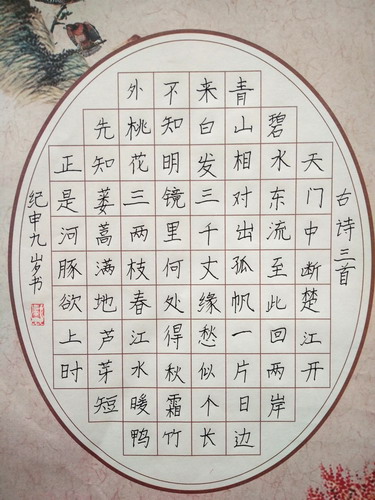 古诗三首
天门中断楚江开
碧水东流至此回两岸
青山相对出孤帆一片日边
来白发三千丈缘愁似个长
不知明镜里何处得秋霜竹
外桃花三两枝春江水暖鸭
先知蒌蒿满地芦芽短
正是河豚欲上时
纪申九岁书